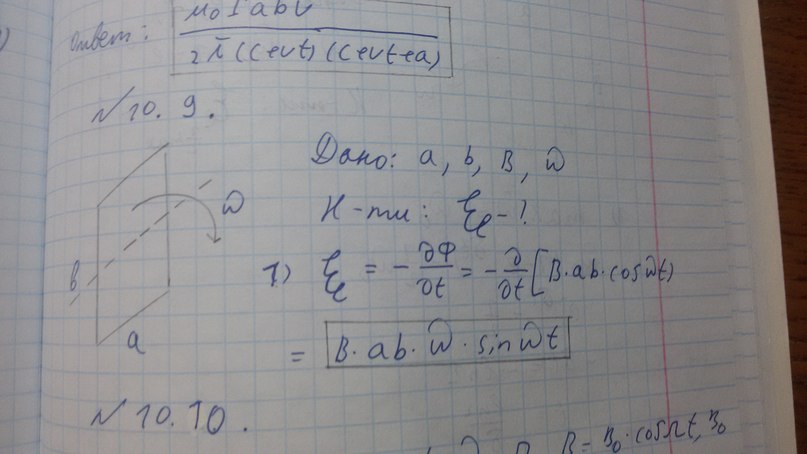 ответ: μ₀ I a b v / 2π(c+vt)(c+vt+a)
№ 10. 9.
Дано: a, b, B, ω
Н-ти: ξ - ?
ω
в
a
1) ξ = - ∂Ф/∂t = - ∂/∂t [B·ab·cosωt)
= B·ab·ω·sinωt
№ 10.10.
B = B₀·cosΩt, B₀